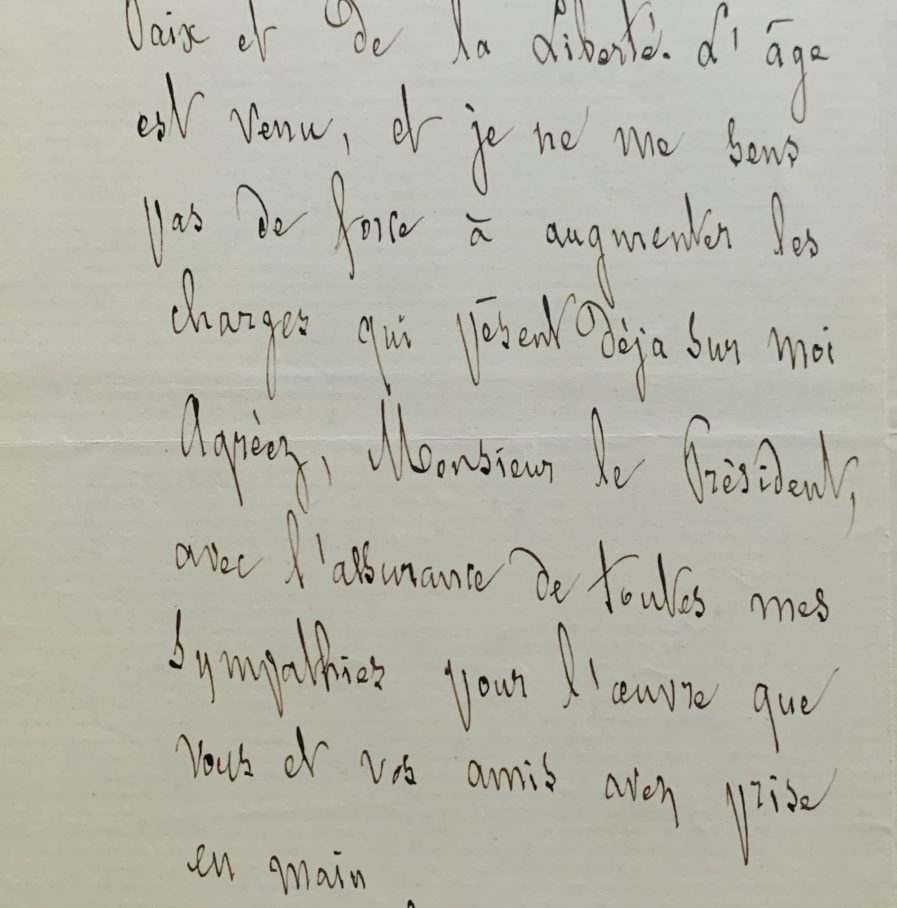 Paix et de la Liberté. L'âge
est venu, et je ne me sens
pas de force à augmenter les
charges qui pèsent déjà sur moi
Agréez, Monsieur le Président,
avec l'assurance de toutes mes
sympathies pour l'œuvre que
vous et vos amis avez prise
en main